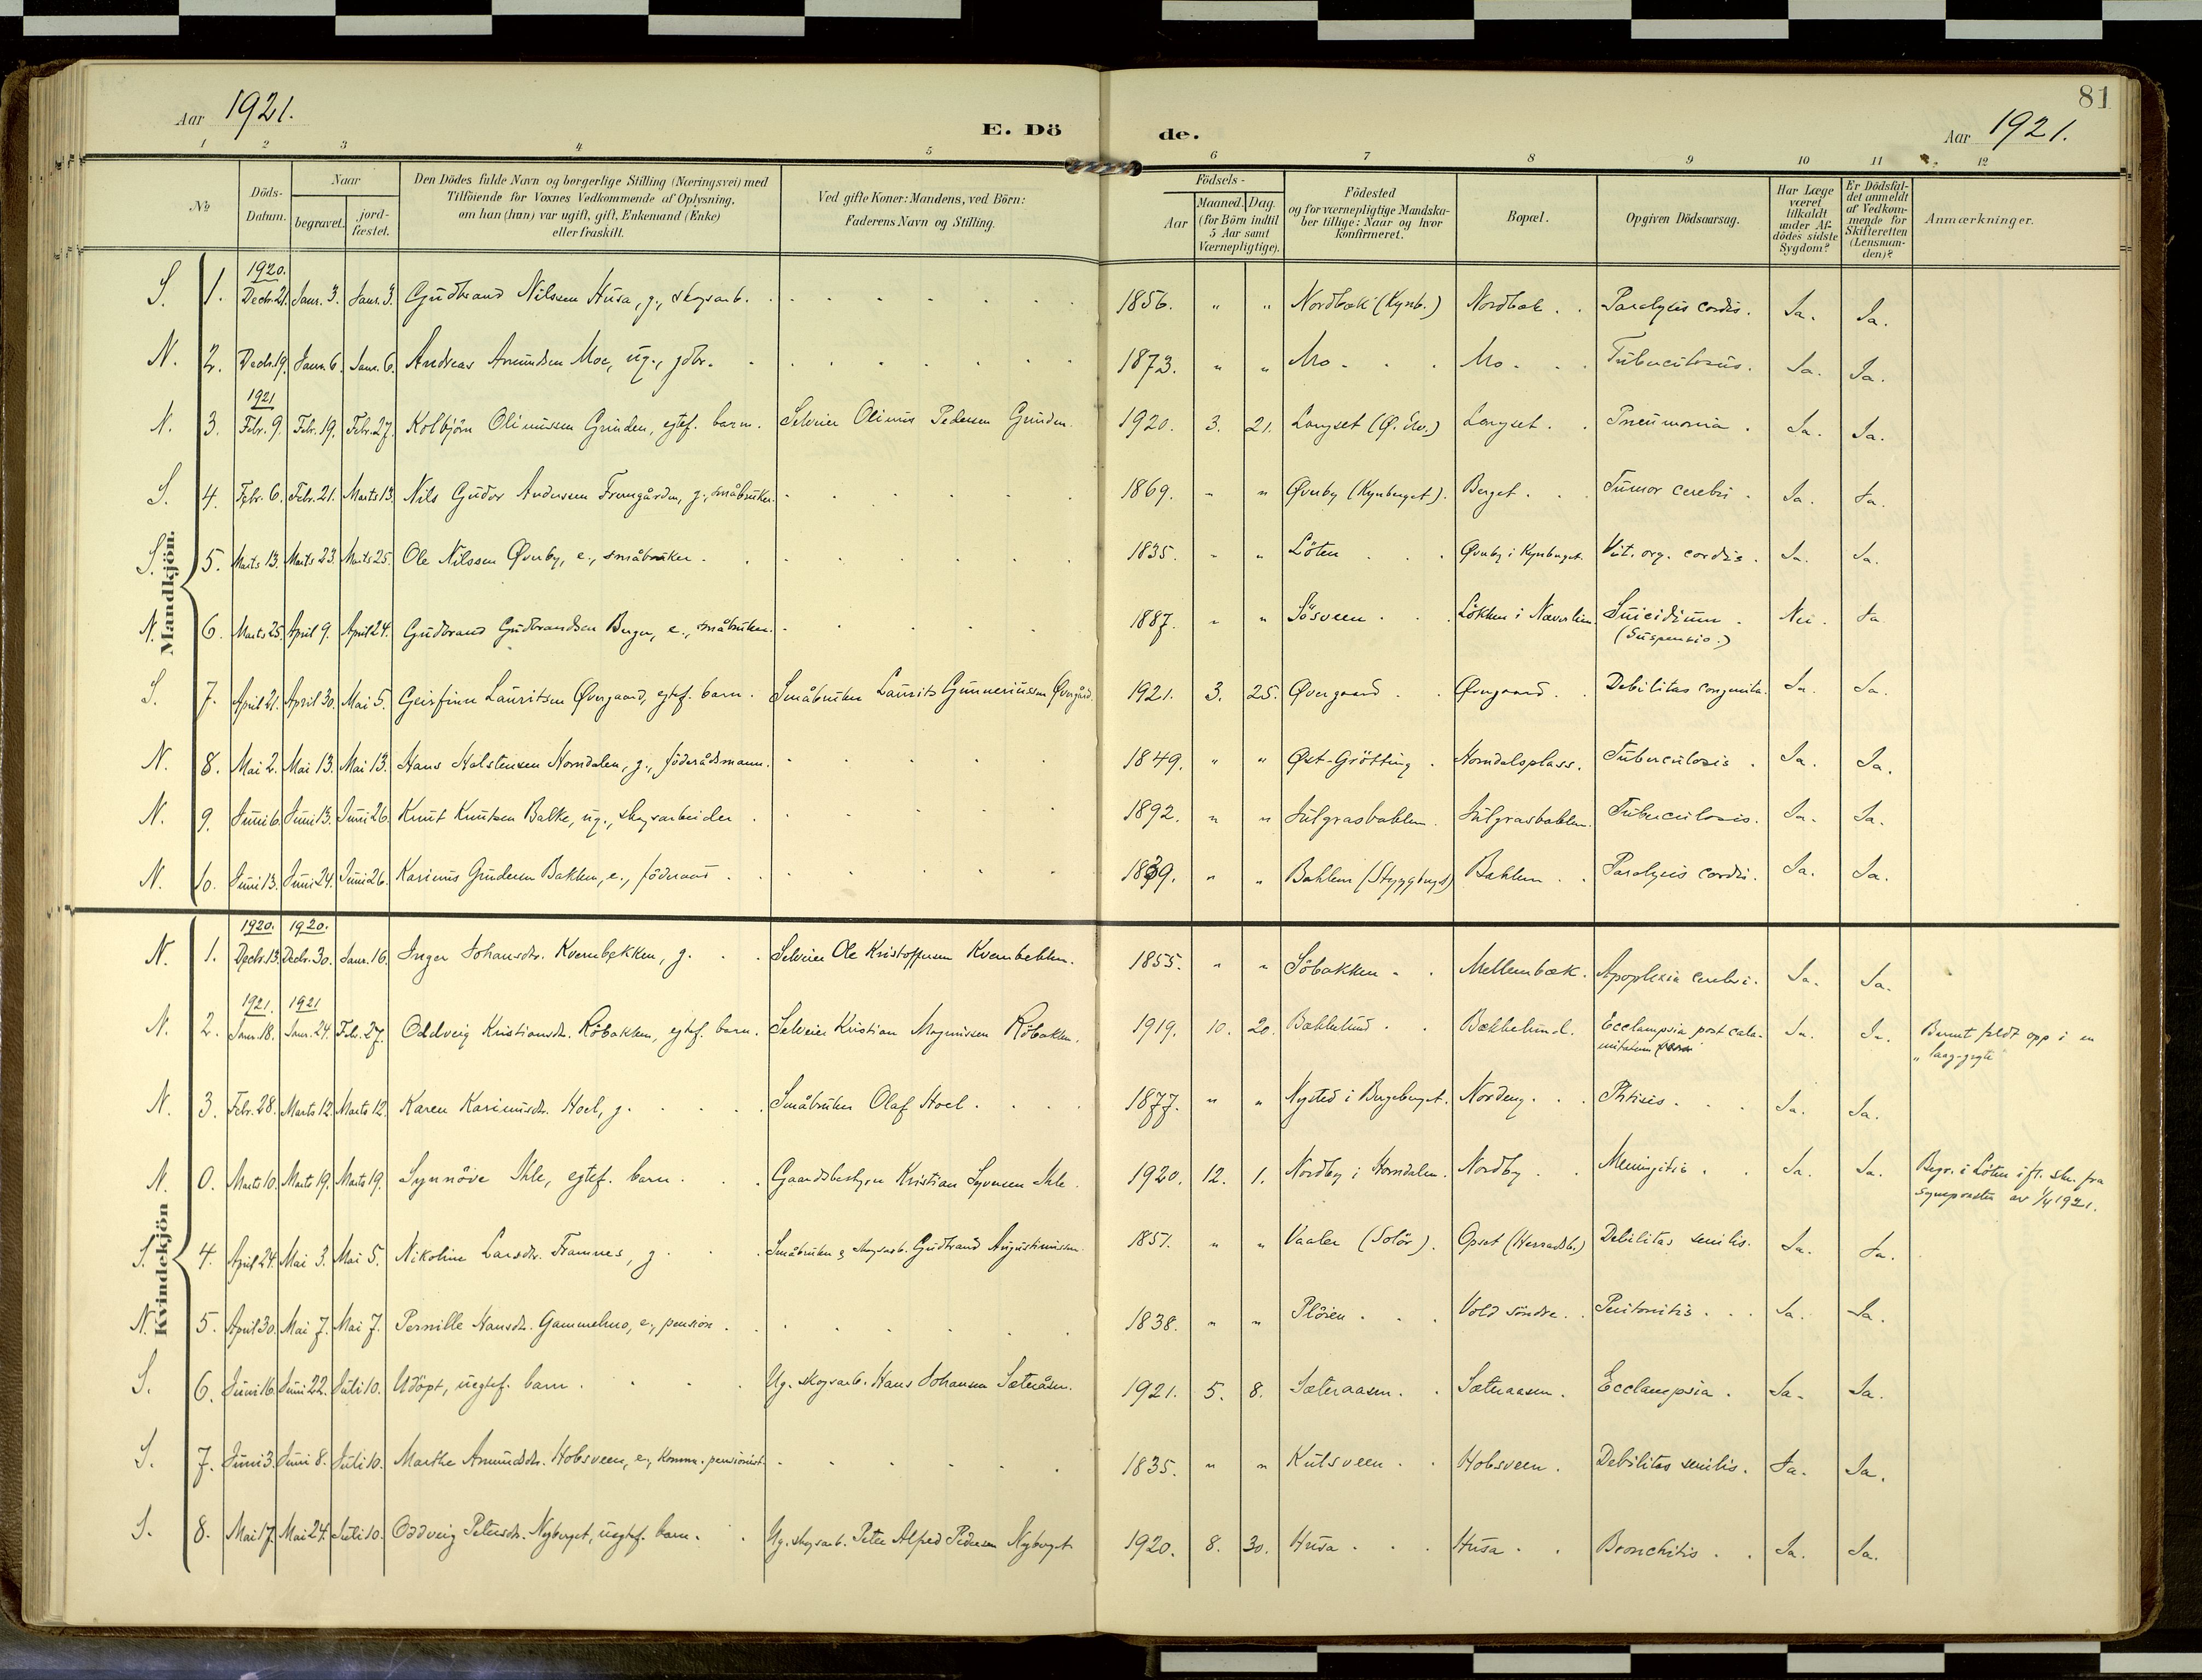 81
Aar 1921.
E. Döde.
Aar 1921.
1 2 3 4 5 6 7 8 9 10 11 12
No
Döds-Datum.
Naar
begravet.
jord-fæstet.
Den Dödes fulde Navn og borgerlige Stilling (Næringsvei) med
Tilföiende for Voxnes Vedkommende af Oplysning,
om han (hun) var ugift, gift, Enkemand (Enke)
eller fraskilt.
Ved gifte Koner: Mandens, ved Börn:
Faderens Navn og Stilling.
Födsels-
Aar
Maaned. Dag.
(for Börn indtil
5 Aar samt
Værnepligtige).
Födested
og for værnepligtige Mandska-
ber tillige: Naar og hvor
konfirmeret.
Bopæl.
Opgiven Dödsaarsag.
Har Læge
været
tilkaldt
under Af-
dödes sidste
Sygdom?
Er Dödsfal-
det anmeldt
af Vedkom-
mende for
Skifteretten
(Lensman-
den)?
Anmærkninger.
Mandkjön.
1920.
S. 1. Decbr. 21. Janr. 3. Janr. 3. Gudbrand Nilssen Husa, g., skogsarb. 1856. " " Nordbæk (Kynb.) Nordbæk. Paralysis cordis. Ja. Ja.
N. 2. Decbr. 19. Janr. 6. Janr. 6. Andreas Amundsen Moe, ug., jdbr. 1873. " " Mo. Mo. Tuberculosis. Ja. Ja.
1921
N. 3. Febr. 9. Febr. 19. Febr. 27. Kolbjörn Olimussen Grinden, egtef. barn. Selveier Olimus Pedersen Grinden. 1920. 3. 21. Langset Langset. Pneumonia. Ja. Ja.
S. 4. Febr. 6. Febr. 21. Marts 13. Nils Gudor Andersen Fremgården, g., småbruker. 1869. " " Øverby (Kynberget). Berget. Tumor cerebri. Ja. Ja.
S. 5. Marts 13. Marts 23. Marts 25. Ole Nilssen Øverby, e., småbruker. 1835. " " Löten Øverby i Kynberget. Vit. org. cordis. Ja. Ja.
N. 6. Marts 25. April 9. April 24. Gudbrand Gudbrandsen Berger, e., småbruker. 1887. " " Sösveen. Lökken i Næverlien. Suicidium.
(Suspensio.) Nei. Ja.
S. 7. April 21. April 30. Mai 5. Geirfinn Lauritsen Øvergaard, egtef. barn. Småbruker Laurits Gunneriussen Øvergård. 1921. 3. 25. Øvergaard. Øvergaard. Debilitas congenita. Ja. Ja.
N. 8. Mai 2. Mai 13. Mai 13. Hans Halstensen Horndalen, g., föderådsmann. 1849. " " Øst-Grötting. Horndalsplass. Tuberculosis. Ja. Ja.
N. 9. Juni 6. Juni 13. Juni 26. Knut Knutsen Bakke, ug., skogsarbeider. 1892. " " Julgrasbakken. Julgrasbakken. Tuberculosis. Ja. Ja.
N. 10. Juni 13. Juni 24. Juni 26. Karinus Gundersen Bakken, e., föderaad. 1839. " " Bakken (Styggberget) Bakken. Paralysis cordis. Ja. Ja.
Kvindekjön
1920. 1920.
N. 1. Decbr. 13. Decbr. 30. Janr. 16. Inger Johansdtr. Kvernbekken, g. Selveier Ole Kristoffersen Kvernbekken. 1855. " " Söbakken. Mellembæk. Apoplexia cerebri. Ja. Ja.
1921. 1921
N. 2. Janr. 18. Janr. 24. Febr. 27. Oddveig Kristiansdtr. Röbakken, egtef. barn. Selveier Kristian Magnussen Röbakken. 1919. 10. 20. Bækkelund. Bækkelund. Ecclampsia post cala-
Ja. Ja. Barnet faldt opp i en
N. 3. Febr. 28. Marts 12. Marts 12. Karen Karinusdtr. Hoel, g. Småbruker Olaf Hoel. 1877. " " Nysted i Bergeberget. Nordeng. Phtisis. Ja. Ja.
N. 0. Marts 10. Marts 19. Marts 19. Synnöve Ihle, egtef. barn. Gaardsbestyrer Kristian Syversen Ihle. 1920. 12. 1. Nordby i Horndalen. Nordby. Meningitis. Ja. Ja. Begr. i Löten ifl. skr. fra
sognepresten av 1/4 1921.
S. 4. April 24. Mai 3. Mai 5. Nikoline Larsdtr. Framnes, g. Småbruker & skogsarb. Gudbrand Augustinussen. 1851. " " Vaaler (Solör). Opset (Herradsb.) Debilitas senilis. Ja. Ja.
N. 5. April 30. Mai 7. Mai 7. Pernille Hansdtr. Gammelmo, e., pension. 1838. " " Plöien. Vold söndre. Peritonitis. Ja. Ja.
S. 6. Juni 16. Juni 22. Juli 10. Udöpt, uegtef. barn. Ug. skogsarb. Hans Johansen Sæteråsen. 1921. 5. 8. Sæteraasen. Sæteraasen. Ecclampsia. Ja. Ja.
S. 7. Juni 3. Juni 8. Juli 10. Marthe Amundsdtr. Hobsveen, e., komm. pensionist. 1835. " " Kulsveen. Hobsveen. Debilitas senilis. Ja. Ja.
S. 8. Mai 17. Mai 24. Juli 10. Oddveig Petersdtr. Nyberget, uegtef. barn. Ug. skogsarb. Peter Alfred Pedersen Nyberget. 1920. 8. 30. Husa. Husa. Bronchitis. Ja. Ja.